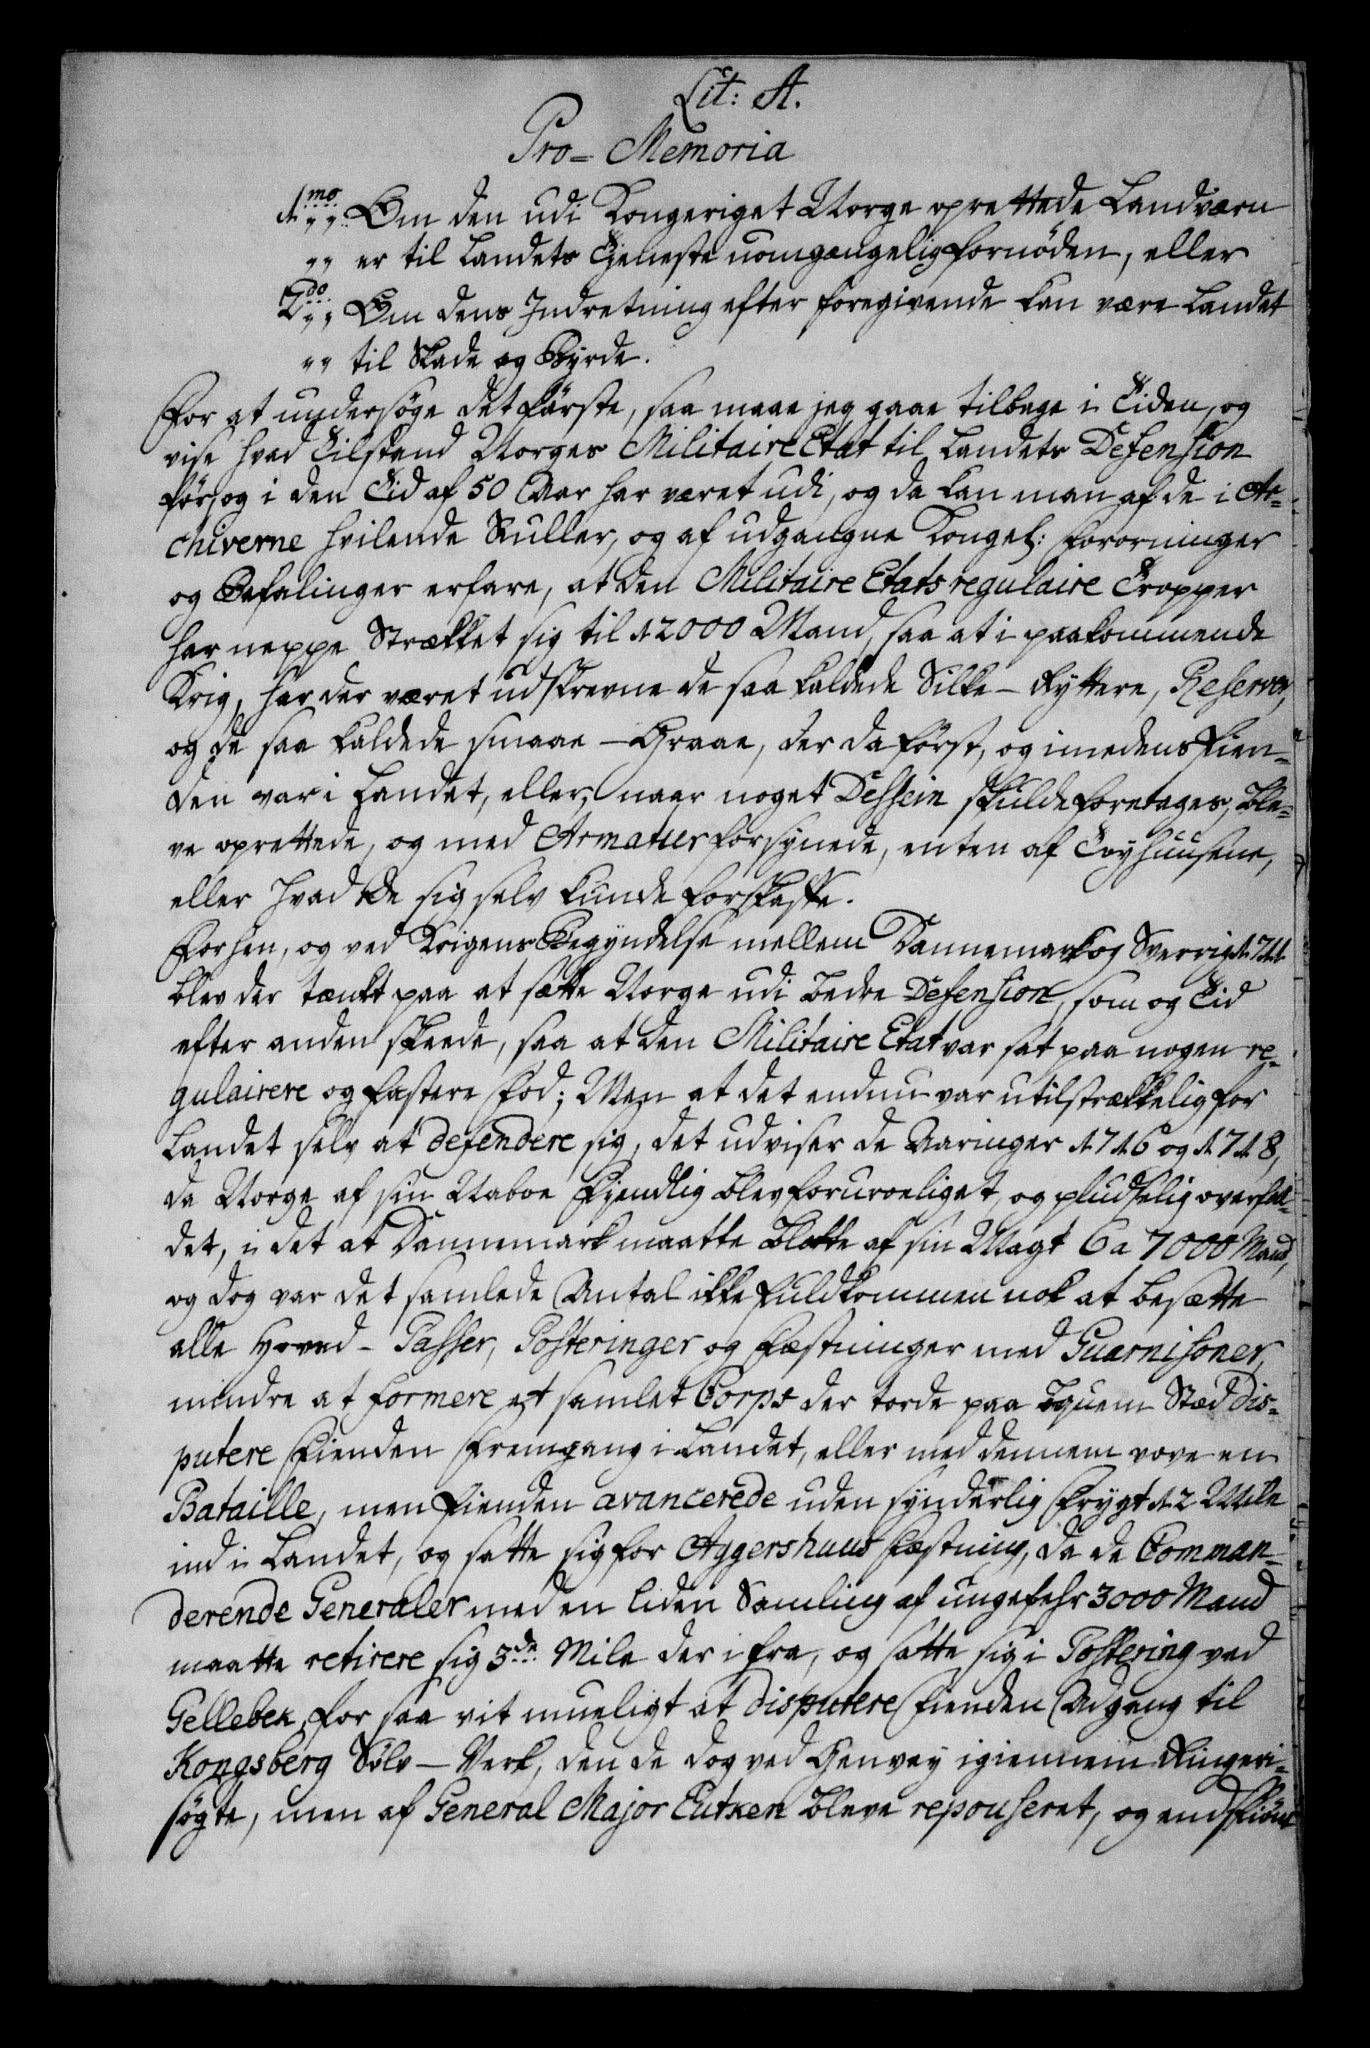 Lit: A.
Pro= Memoria
1mo Om den udi Kongeriget Norge oprettede Landværn
" " er til Landets Tjeneste uomgængelig fornöden, eller
2do Om dens Indretning efter foregivende kan være Landet
" " til Skade og Byrde.
For at undersøge det förste, saa maae jeg gaae tilbage i Tiden, og
vise hvad Tilstand Norges Militaire Etat til Landets Defension
för, og i den Tid af 50 Aar har været udi, og da kan man af de i Ar=
chiverne hvilende Ruller, og af udgangne Kongel: Fororninger
og Befalinger erfare, at den Militaire Etats regulaire Tropper
har neppe Strækket sig til 12000 Mand, saa at i paakommende
Krig, har der været udskrevne de saa kaldede Silke- Ryttere, Reserver,
og de saa kaldede smaae - Graae, der da först, og imedens Fien=
den var i Landet, eller, naar noget Dessein skulde foretages, ble=
ve oprettede, og med Armatur forsynede, enten af Töyhuusene,
eller hvad de sig selv kunde forskaffe.
Forhen, og ved Krigens Begyndelse mellem Dannemark og Sverrig 1711
blev der tænkt paa at sætte Norge udi bedre Defension, som og Tid
efter anden skeede, saa at den Militaire Etat var sat paa nogen re=
gulairere og fastere Fod; Men at det endnu var utilstrækkelig for
Landet selv at defendere sig, det udviser de Aaringer 1716 og 1718,
da Norge af sin Naboe Fiendlig blev foruroeliget, og pludselig overfal=
det, i det at Dannemark maatte blotte af sin Magt 6 a 7000 Mand,
og dog var det samlede Antal ikke fuldkommen nok at besætte
alle Hoved- Passer, Posteringer og Fæstninger med Guarnisoner,
mindre at formere et samlet Corps der torde paa bequem Stæd dis=
putere Fienden Fremgang i Landet, eller med dennem vove en
Bataille, men Fienden avancerede uden synderlig Frygt 12 Mile
ind i Landet, og satte sig for Aggershuus Fæstning, da de Comman=
derende Generaler med en liden Samling af ungefehr 3000 Mand
maatte retirere sig 3de Mile der ifra, og satte sig i Postering ved
Gellebek, for saa vit mueligt at disputere Fienden Adgang til
Kongsberg Sölv - Verk, den de dog ved Genvey igiennem Ringeri=
søgte, men af General Major Lutken bleve repouseret, og endskiönt